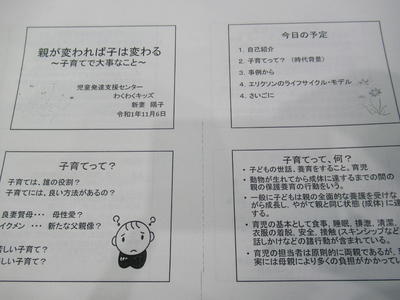 親が変われば子は変わる
～子育てで大事なこと～
児童発達支援センター
わくわくキッズ
新妻 陽子
令和1年11月6日
今日の予定
1. 自己紹介
2. 子育てって？（時代背景）
3. 事例から
4. エリクソンのライフサイクル・モデル
4. さいごに
子育てって？
子育ては、誰の役割？
子育てには、良い方法があるの？
良妻賢母・・・ 母性愛？
イクメン・・・ 新たな父親像？
しい子育て？
しい子育て？
子育てって、何？
・子どもの世話、養育をすること。育児
・動物が生れてから成体に達するまでの間の
親の保護養育の行動をいう。
・一般に子どもは親の全面的な養護を受けな
がら成長し、やがて親と同じ状態（成体）に達
する。
・育児の基本として食事、睡眠、排泄、清潔、
衣服の着脱、安全、接触（スキンシップなど
話しかけなどの諸行動が含まれている。
・育児の担当者は原則的に両親であるが、
実には母親により多くの負担がかかってい